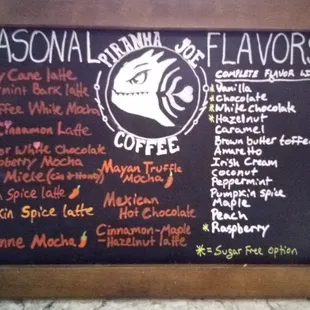 ASONAL
PIRANHA JOE
COFFEE
FLAVORS
y Cane latte
rmint Bark latte
ffee White Mocha
Cinnamon Latte
or White Chocolate
pberry Mocha
Miele (Cin & Honey)
n Spice latte
kin Spice latte
nne Mocha
Mayan Truffle
Mocha
Mexican
Hot Chocolate
Cinnamon-Maple
-Hazelnut latte
COMPLETE FLAVOR LI
*Vanilla
*Chocolate
*White Chocolate
*Hazelnut
Caramel
Brown butter toffee
Amaretto
Irish Cream
Coconut
Peppermint
Pumpkin Spice
Maple
Peach
*Raspberry
*= Sugar Free Option